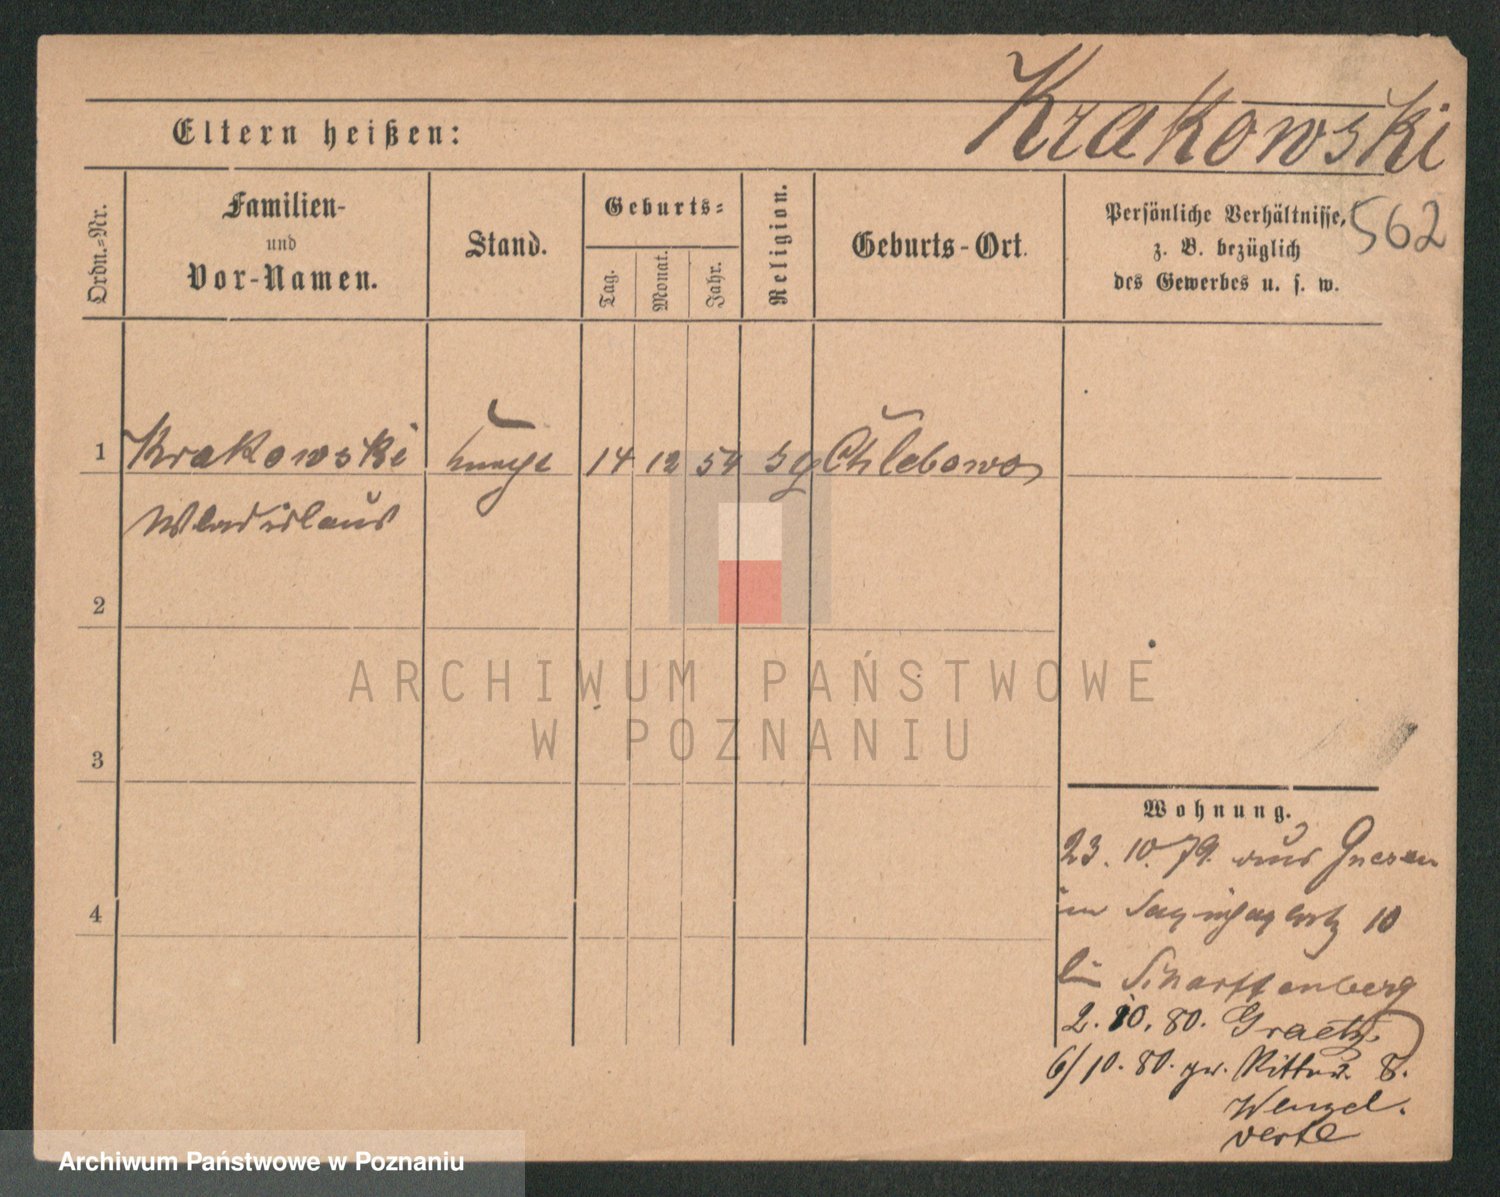 Krakowski
Eltern heißen:
562
Ordn.=Nr.
Familien-
und
Vor-Namen.
Stand.
Geburts=
Tag.
Monat.
Jahr.
Religion.
Geburts-Ort.
Persönliche Verhältnisse,
z. B. bezüglich
des Gewerbes u. s. w.
1 Krakowski 14 12 54 Chlebowo
Wladislaus
2
ARCHIWUM PAŃSTWOWE
W POZNANIU
3
Wohnung.
23. 10. 79. aus Gnesen
4
10
Scharffenberg
2. 10. 80. Graetz.
6/10. 80. gr. Ritter. 8.
Wenzel.
verte
Archiwum Państwowe w Poznaniu